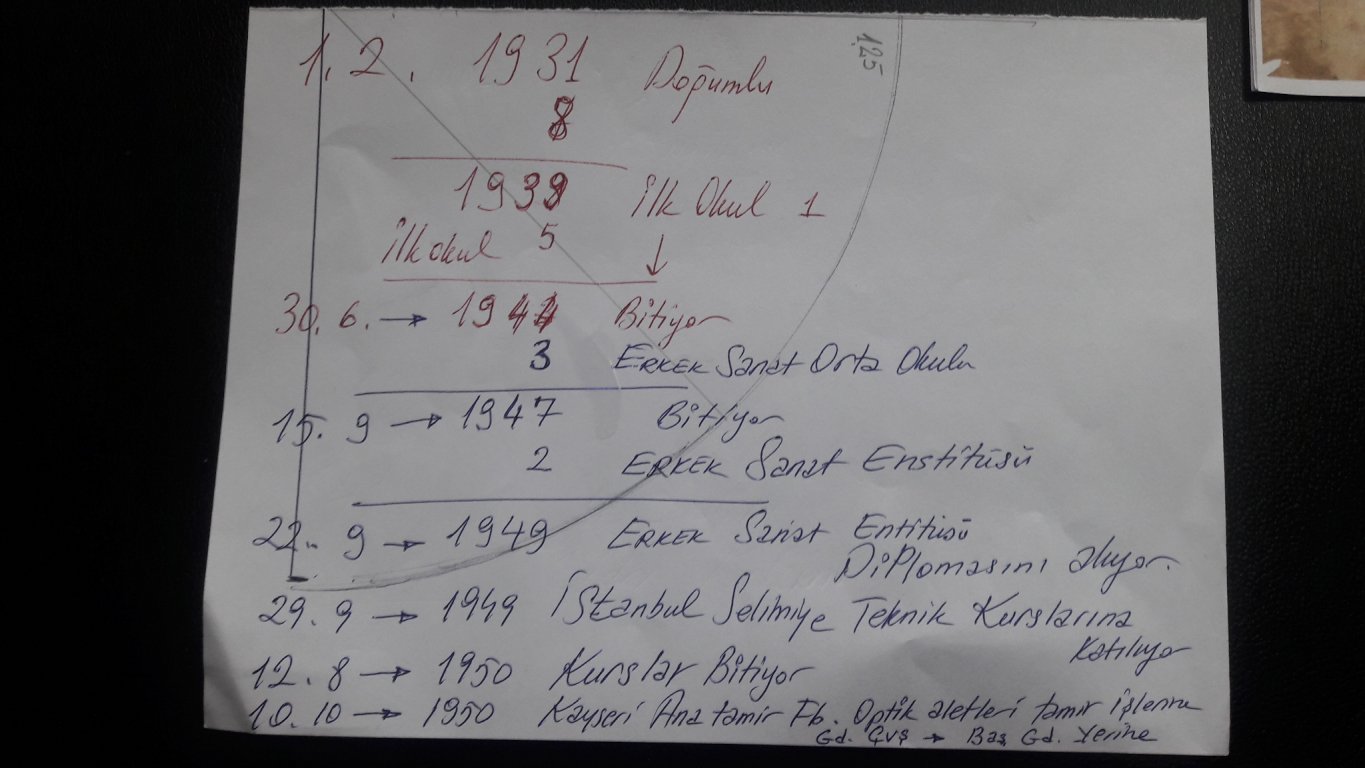 1.2. 1931 Doğumlu
8
1939 İlk Okul 1
İlkokul 5 ↓
30. 6. → 1944 Bitiyor
3 ERKEK Sanat Orta Okulu
15. 9 → 1947 Bitiyor
2 ERKEK Sanat Enstitüsü
22. 9 → 1949 ERKEK Sanat Entitüsü
Diplomasını alıyor.
29. 9 → 1949 İstanbul Selimiye Teknik Kurslarına
Katılıyor
12. 8 → 1950 Kurslar Bitiyor
10. 10 → 1950 Kayseri Ana tamir Fb. Optik aletleri tamir işlerine
Gd. Çvş → Baş Gd. Yerine
1,25